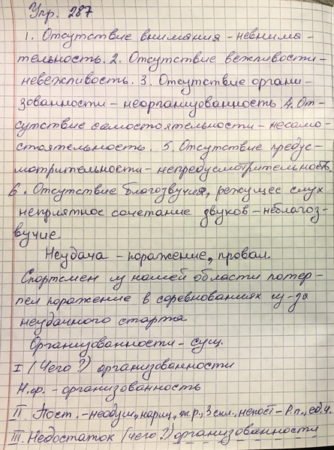 Упр. 287
1. Отсутствие внимания - невнима-
тельность. 2. Отсутствие вежливости -
невежливость. 3. Отсутствие органи-
зованности - неорганизованность 4. От-
сутствие самостоятельности - несамо-
стоятельность. 5. Отсутствие предус-
мотрительности - непредусмотрительность
6. Отсутствие благозвучия, режущее слух
неприятное сочетание звуков - неблагоз-
вучие.
Неудача - поражение, провал.
Спортсмен из нашей области потер-
пел поражение в соревнованиях из-за
неудачного старта
Организованности - сущ.
I (Чего?) организованности
Н.ф. - организованность
II Пост. - неодуш, нариц, ж.р., 3 скл., непост - Р.п., ед.ч.
III Недостаток (чего?) организованности